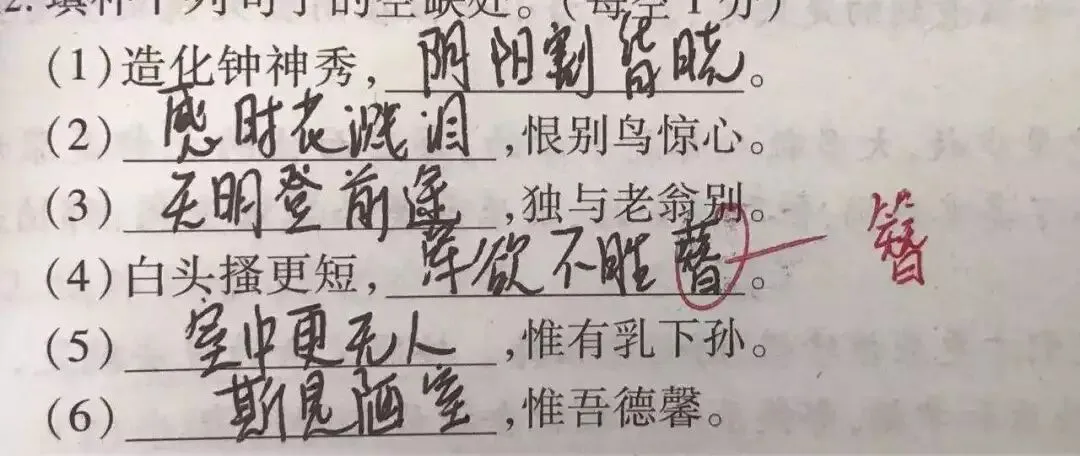 2. 填补下列句子的空缺处。(每空1分)
(1)造化钟神秀,阴阳割昏晓。
(2)感时花溅泪,恨别鸟惊心。
(3)天明登前途,独与老翁别。
(4)白头搔更短,浑欲不胜簪。 簪
(5)室中更无人,惟有乳下孙。
(6)斯是陋室,惟吾德馨。